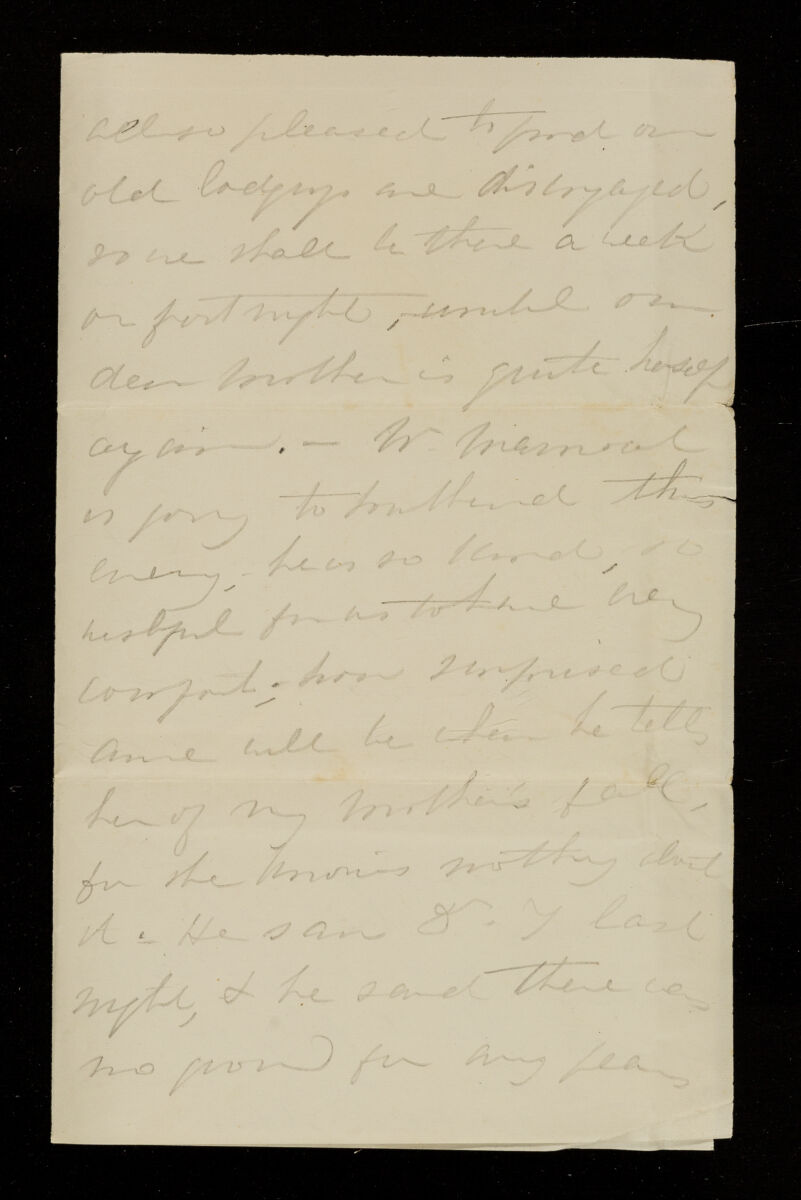 all so pleased to find our
old lodgings are disengaged,
so we shall be there a week
or fortnight, until our
dear Mother is quite herself
again. - W.
is going to Southend this
eveng, - he is so kind, so
for us to have every
comfort, - how surprised
Anne will be when he tells
her of my Mother's fall,
for she knows nothing about
it - He saw Dr. Y last
night, & he said there was
no ground for any fears